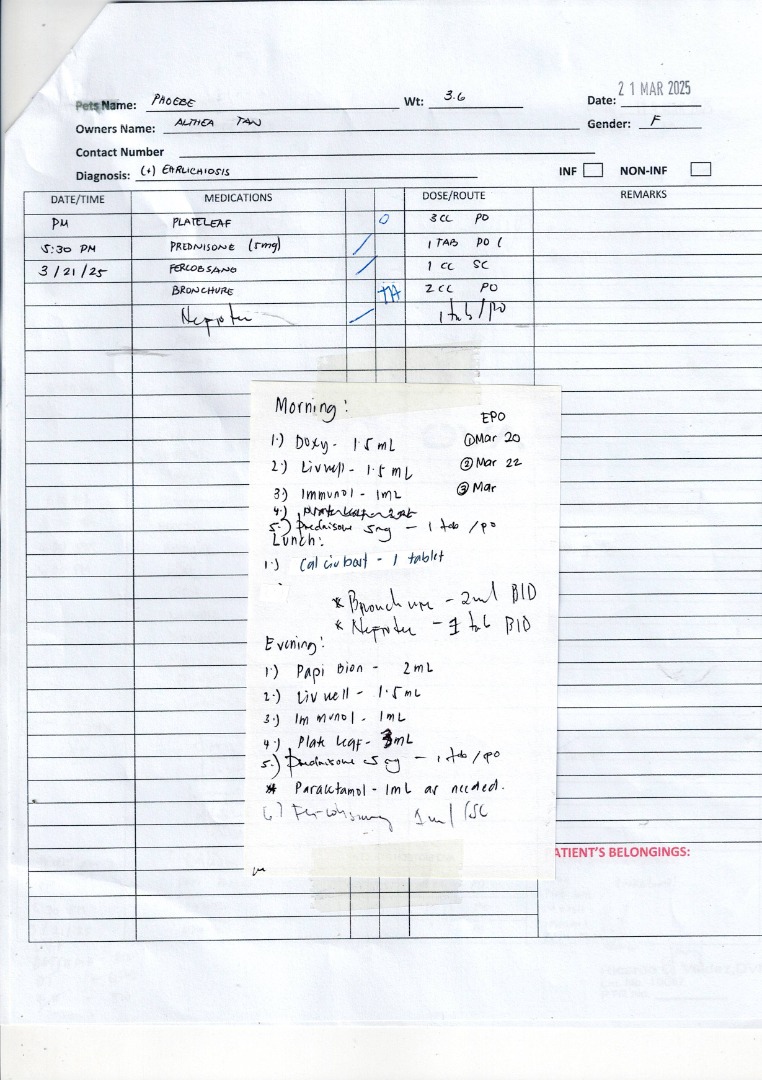 21 MAR 2025
Pets Name: PHOEBE Wt: 3.6 Date:
Owners Name: ALTHEA TAN Gender: F
Contact Number
Diagnosis: (+) EHRLICHIOSIS INF NON-INF
DATE/TIME MEDICATIONS DOSE/ROUTE REMARKS
PM PLATELEAF O 3 CC PO
5:30 PM PREDNISONE (5mg) / 1 TAB PO
3/21/25 FERCOBSANG / 1 CC SC
BRONCHURE TH 2 CC PO
Nefrotec / 1 tab/po
Morning:
EPO
1.) Doxy - 1.5 mL ① Mar 20
2.) Livwell - 1.5 mL ② Mar 22
3.) Immunol - 1mL ③ Mar
4.)
5.) Prednisone 5mg - 1 tab /po
Lunch:
1.) Calciubost - 1 tablet
* Bronchure - 2ml BID
* Nefrotec - 1 tab BID
Evening:
1.) Papi Bion - 2mL
2.) Livwell - 1.5mL
3.) Immunol - 1mL
4.) Plate Leaf - 3mL
5.) Prednisone 5mg - 1 tab /po
* Paracetamol - 1mL as needed.
6) Fercobsang 1ml/SC
ATIENT'S BELONGINGS: